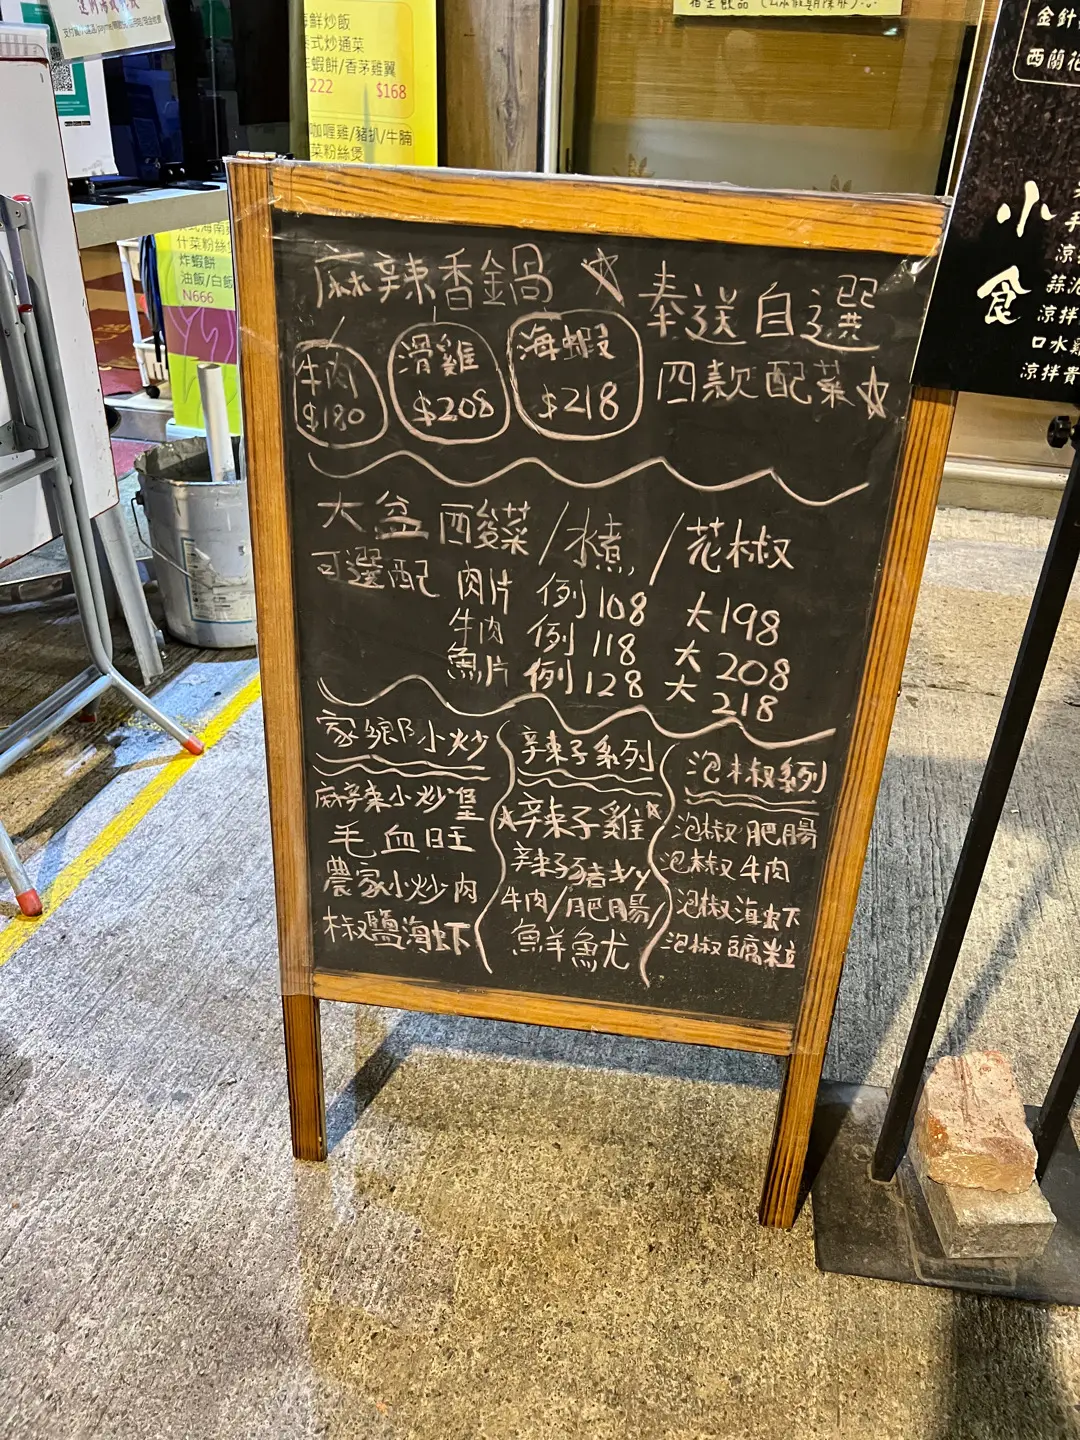 海鮮炒飯
泰式炒通菜
炸蝦餅/香茅雞翼
222 $168
咖喱雞/豬扒/牛腩
菜粉絲煲
什菜粉絲煲
炸蝦餅
油飯/白飯
N666
金針
西蘭花
小食
涼拌
口水雞
涼拌貴
麻辣香鍋 ☆ 奉送自選
四款配菜☆
牛肉 $180
滑雞 $208
海蝦 $218
大盆 酸菜/水煮/花椒
可選配 肉片 例108 大198
牛肉 例118 大208
魚片 例128 大218
家鄉小炒
麻辣小炒皇
毛血旺
農家小炒肉
椒鹽海虾
辣子系列
☆辣子雞☆
辣子豬扒
牛肉/肥腸/
鮮魷
泡椒系列
泡椒肥腸
泡椒牛肉
泡椒海虾
泡椒